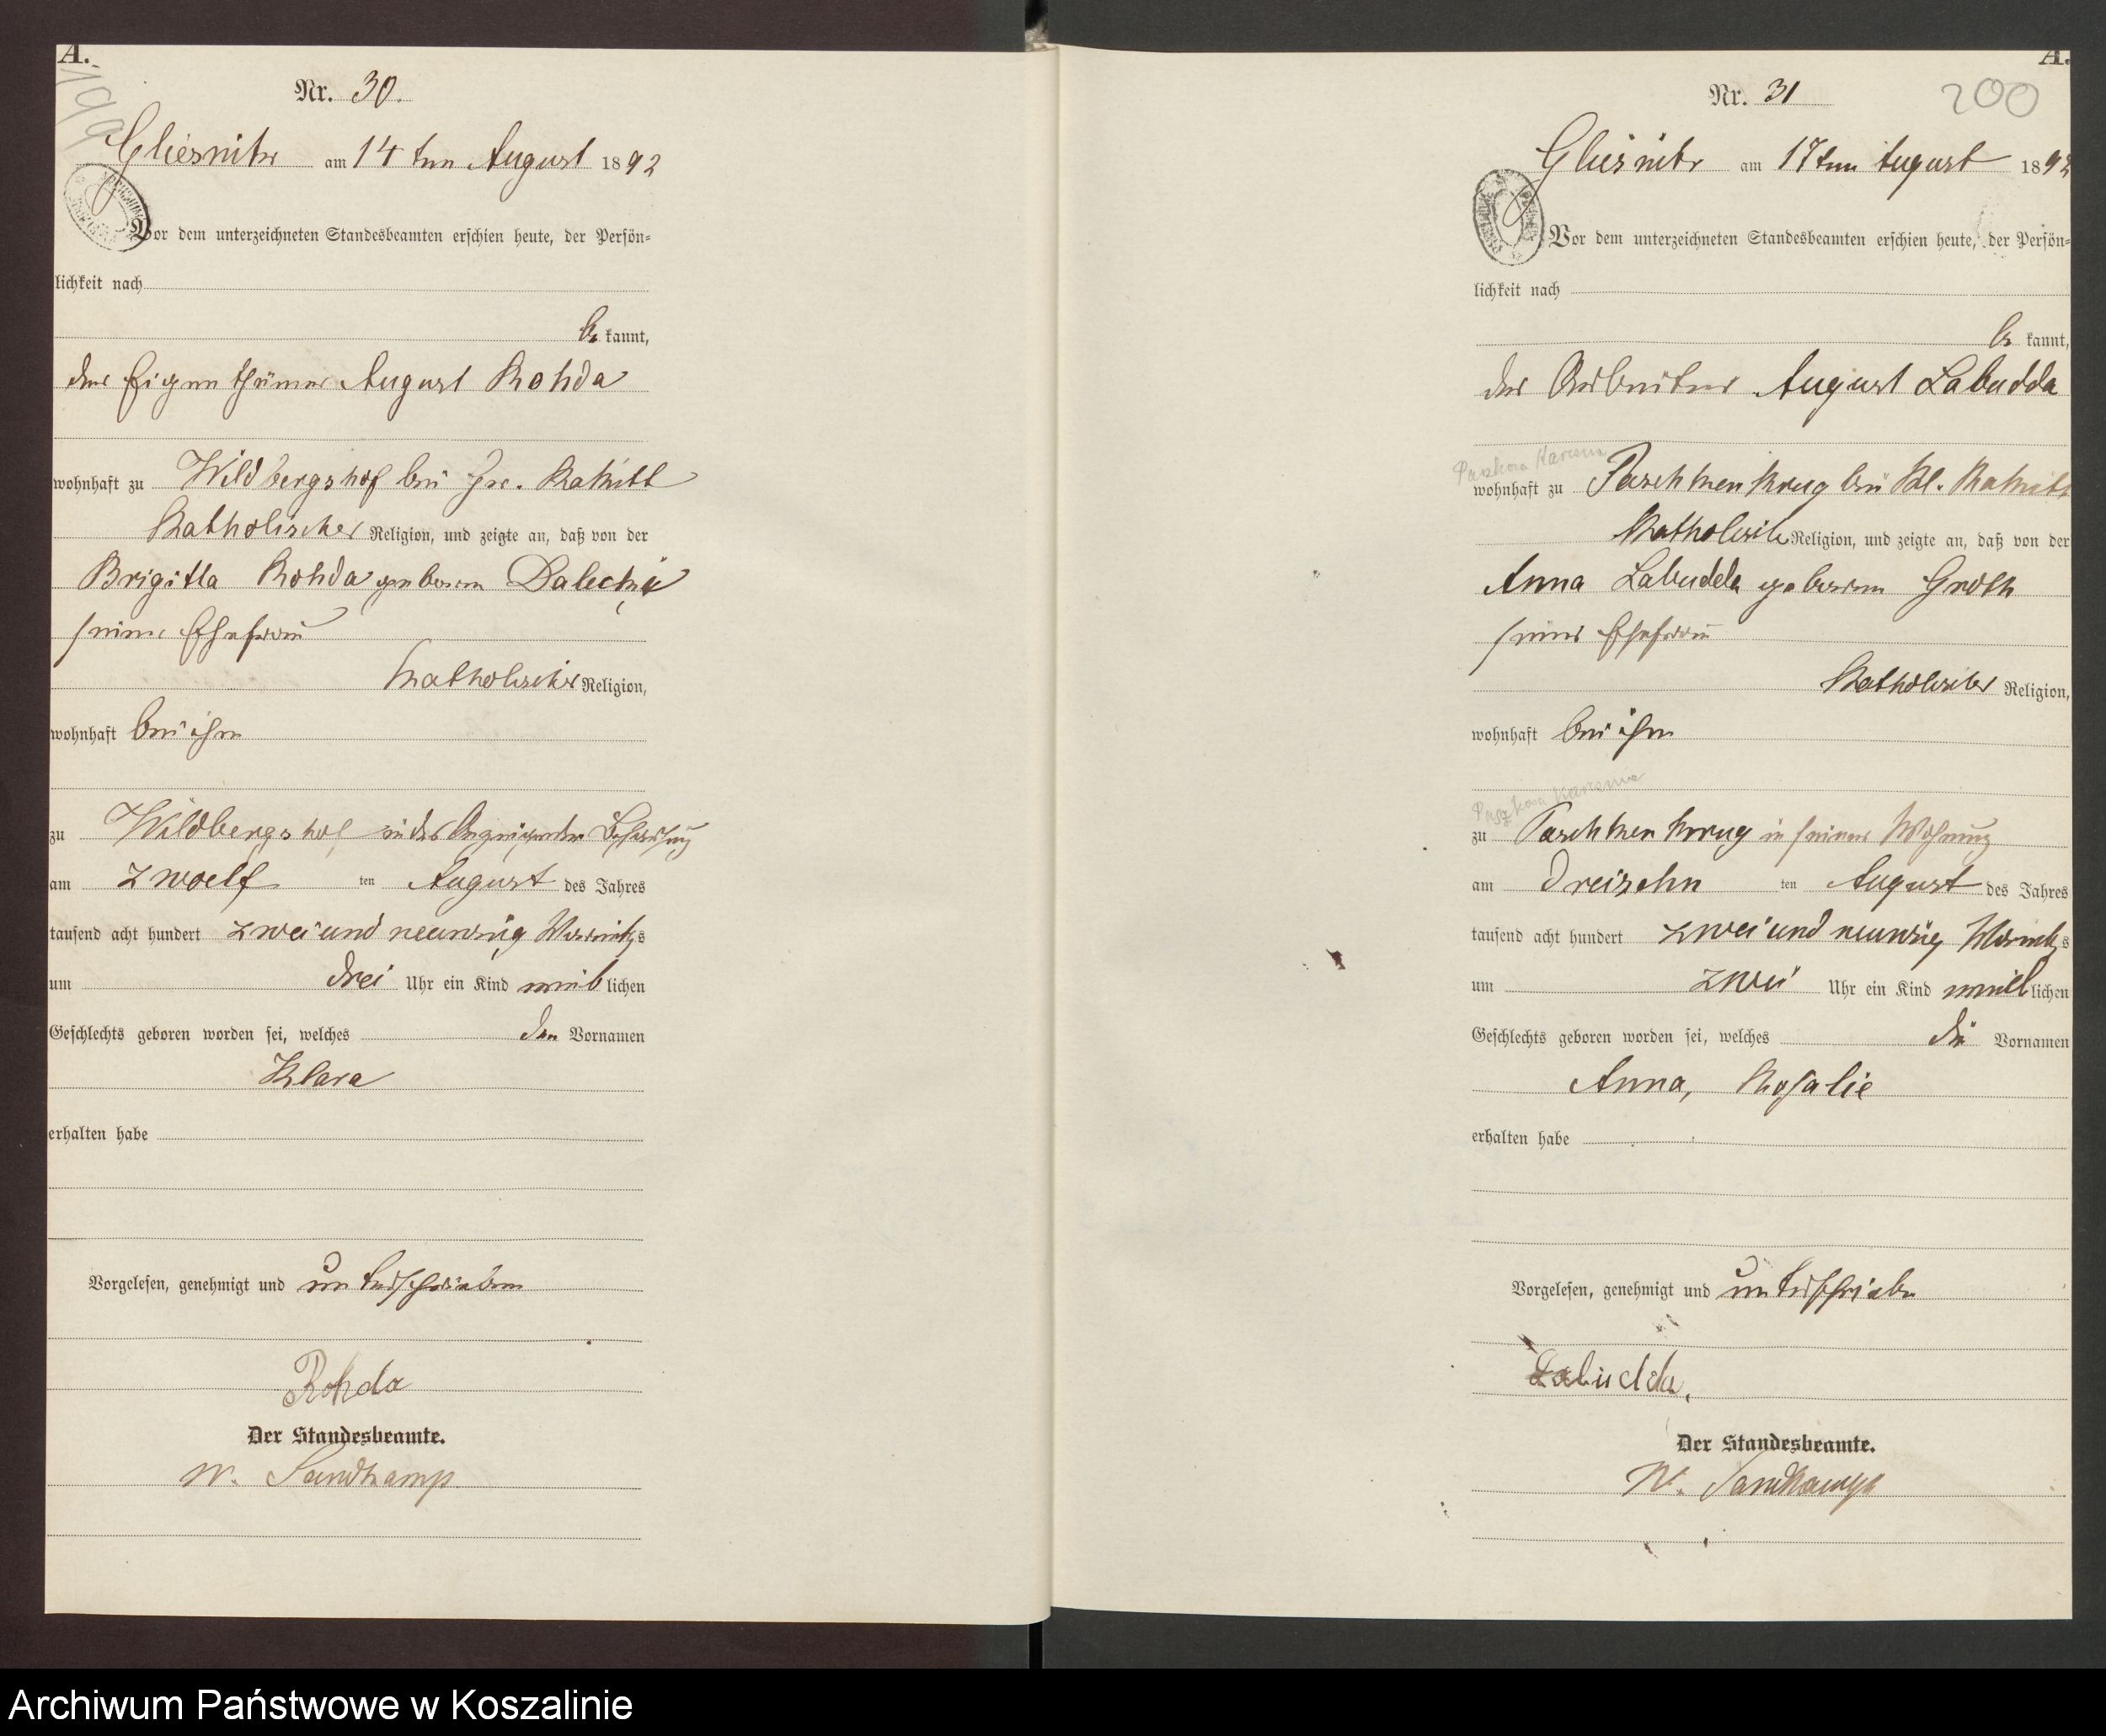 A.
199
Nr. 30.
Gliesnitz am 14ten August 1892
Vor dem unterzeichneten Standesbeamten erschien heute, der Persön=
lichkeit nach
be kannt,
der Eigenthümer August Rohda
wohnhaft zu Wildbergshof bei Gr. Katkitt
Katholischer Religion, und zeigte an, daß von der
Brigitta Rohda geborenen
seiner Ehefrau
Katholischer Religion,
wohnhaft bei ihm
zu Wildbergshof in des Anzeigenden Behausung
am zwoelf ten August des Jahres
tausend acht hundert zwei und neunzig Vormittags
um drei Uhr ein Kind weiblichen
Geschlechts geboren worden sei, welches den Vornamen
Klara
erhalten habe
Vorgelesen, genehmigt und unterschrieben
Rohda
Der Standesbeamte.
W. Sandkamp
A.
200
Nr. 31
Gliesnitz am 17ten August 1892
Vor dem unterzeichneten Standesbeamten erschien heute, der Persön=
lichkeit nach
be kannt,
der Arbeiter August Labudda
wohnhaft zu Paschkenkrug bei Kl.
Katholischer Religion, und zeigte an, daß von der
Anna Labudda geborenen Groth
seiner Ehefrau
Katholischer Religion,
wohnhaft bei ihm
zu Paschkenkrug in seiner Wohnung
am dreizehn ten August des Jahres
tausend acht hundert zwei und neunzig Vormittags
um zwei Uhr ein Kind weiblichen
Geschlechts geboren worden sei, welches die Vornamen
Anna, Rosalie
erhalten habe
Vorgelesen, genehmigt und unterschrieben
Labudda,
Der Standesbeamte.
W. Sandkamp
Archiwum Państwowe w Koszalinie